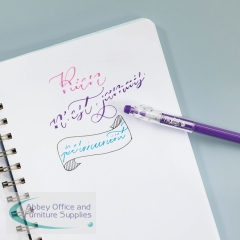 Rien
n'est jamais
permanent
Abbey Office and
Furniture Supplies